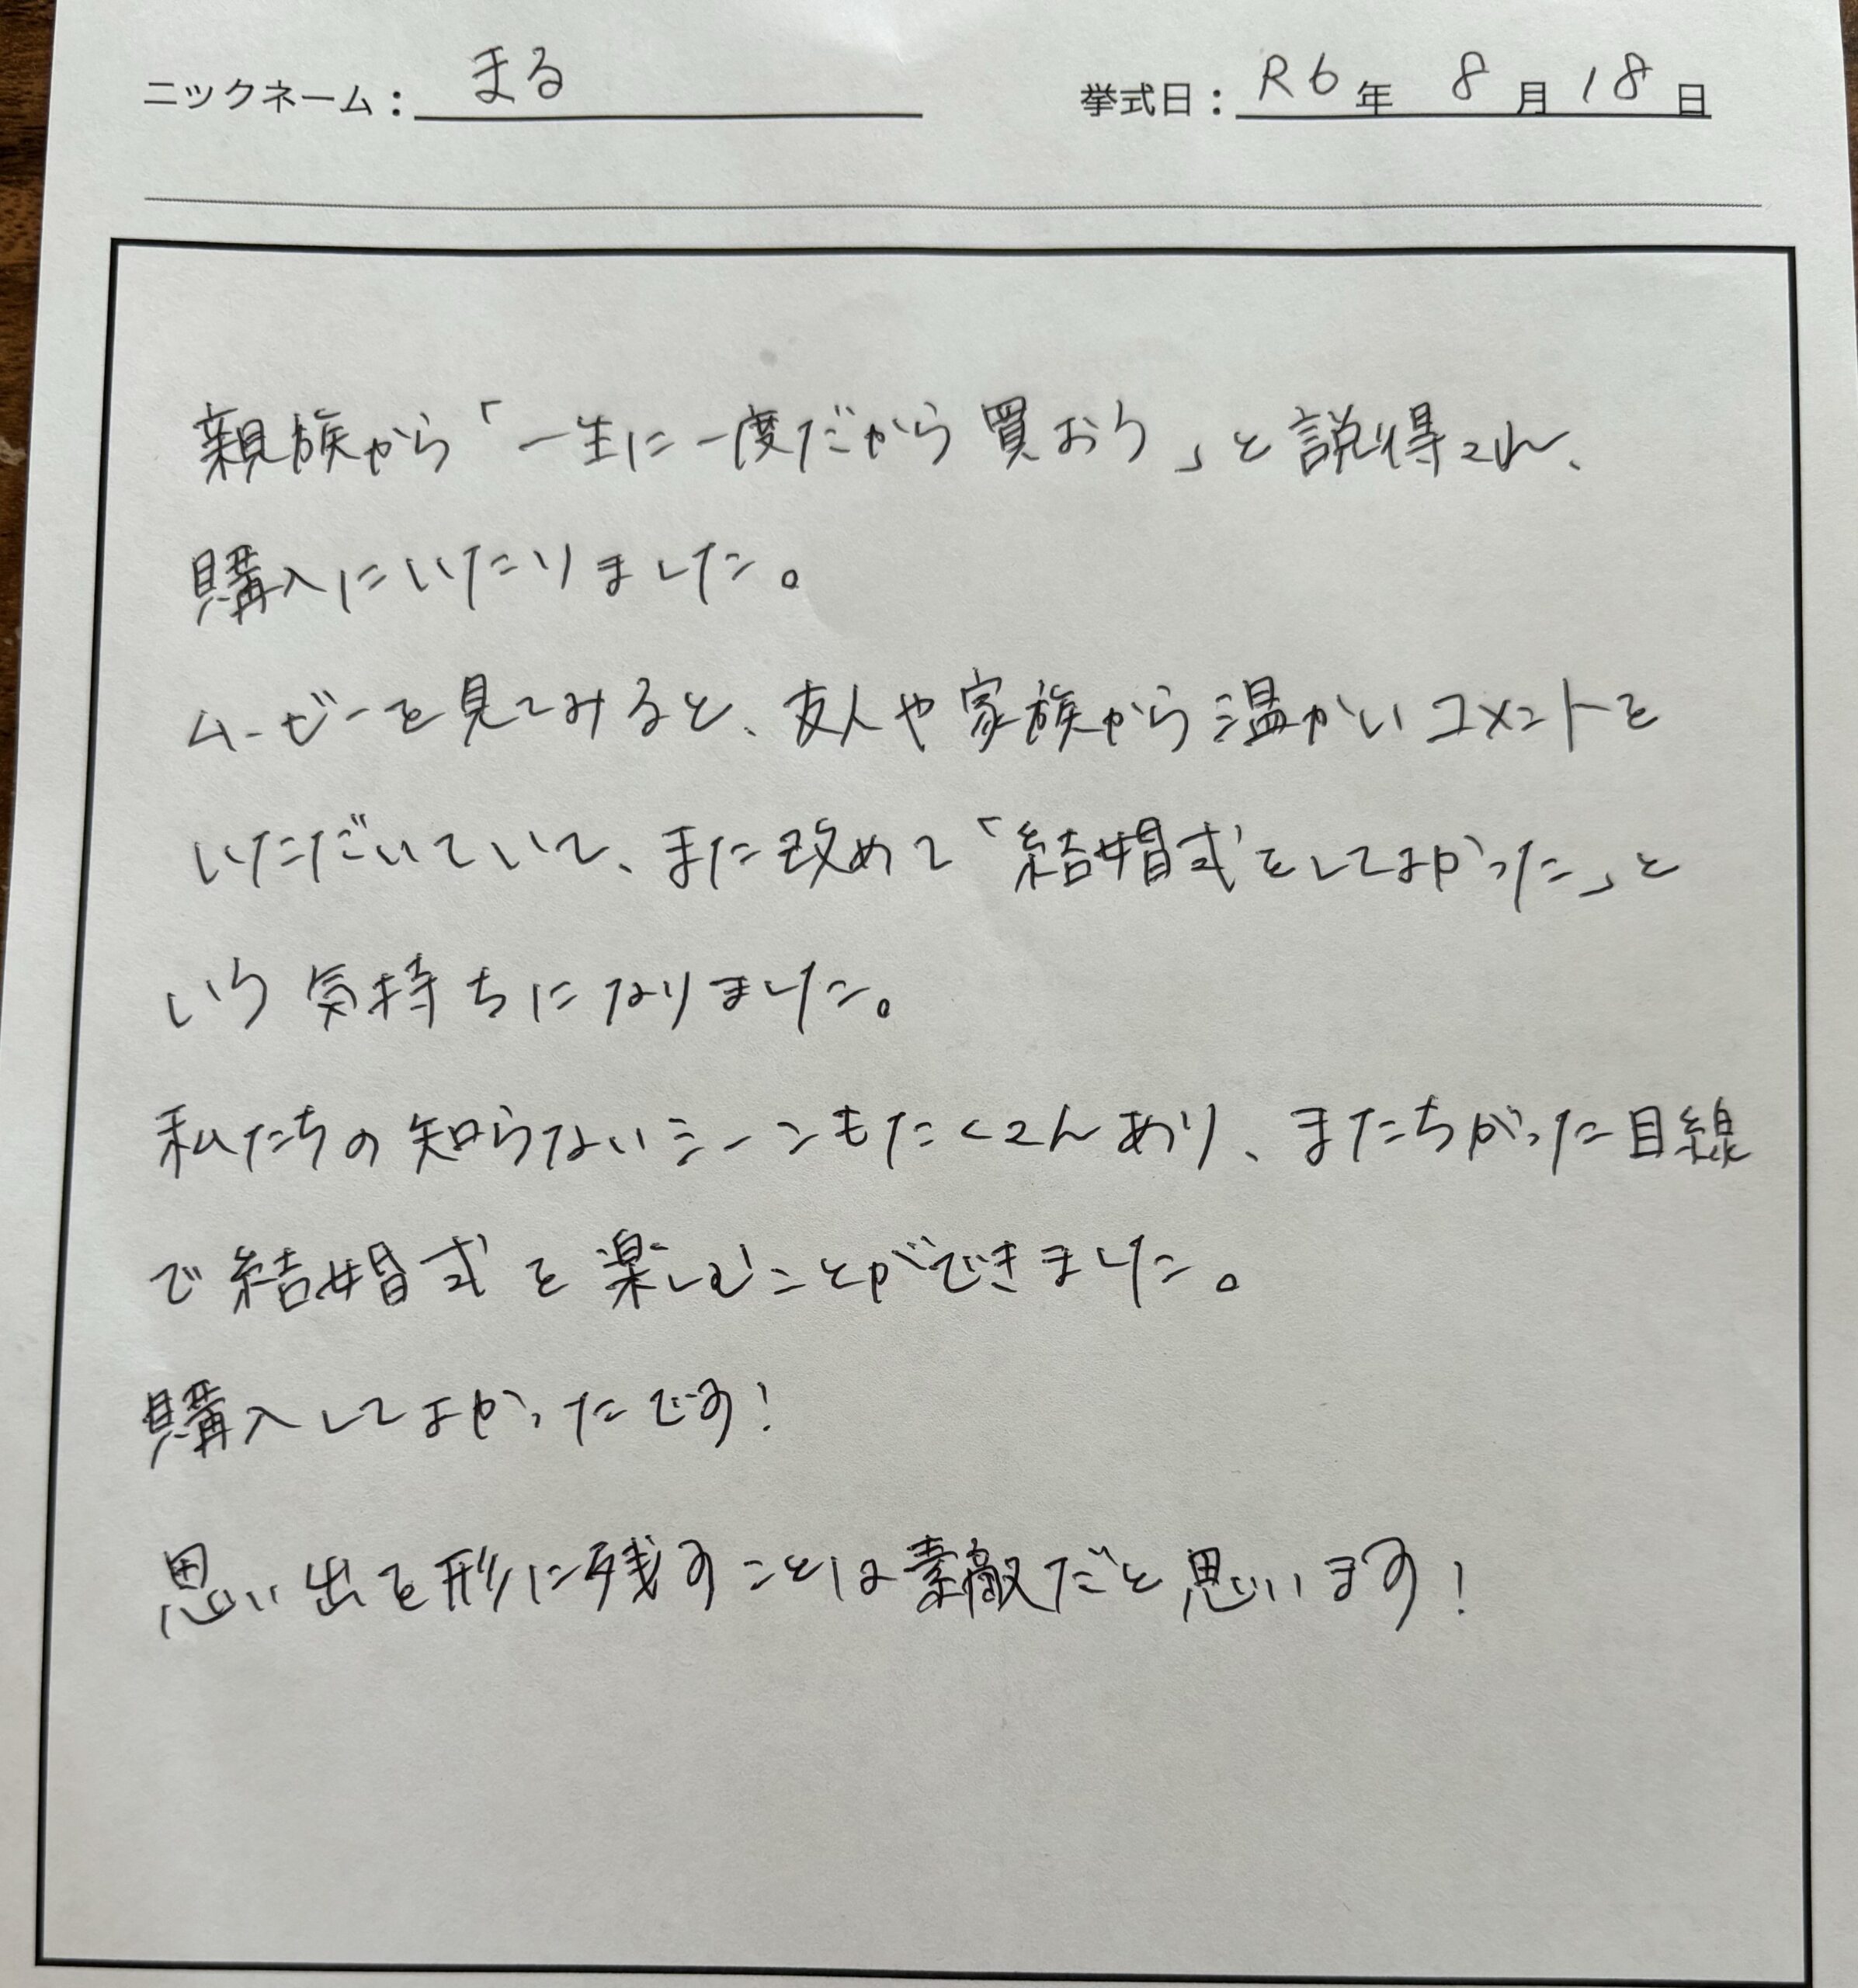 ニックネーム：まる
挙式日：R6年 8月18日
親族から「一生に一度だから買おう」と説得され、
購入にいたりました。
ムービーを見てみると、友人や家族から温かいコメントを
いただいていて、また改めて「結婚式をしてよかった」と
いう気持ちになりました。
私たちの知らないシーンもたくさんあり、またちがった目線
で結婚式を楽しむことができました。
購入してよかったです！
思い出を形に残すことは素敵だと思います！